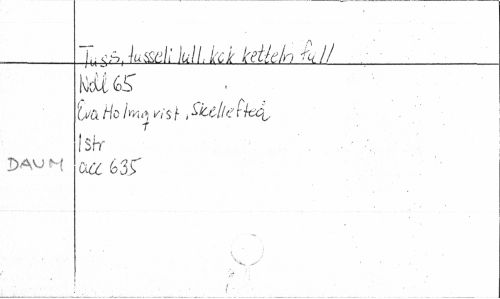 Tuss, tusseli lull, kok ketteln full
Ndl 65
Eva Holmqvist, Skellefteå
1 str
DAUM acc 635